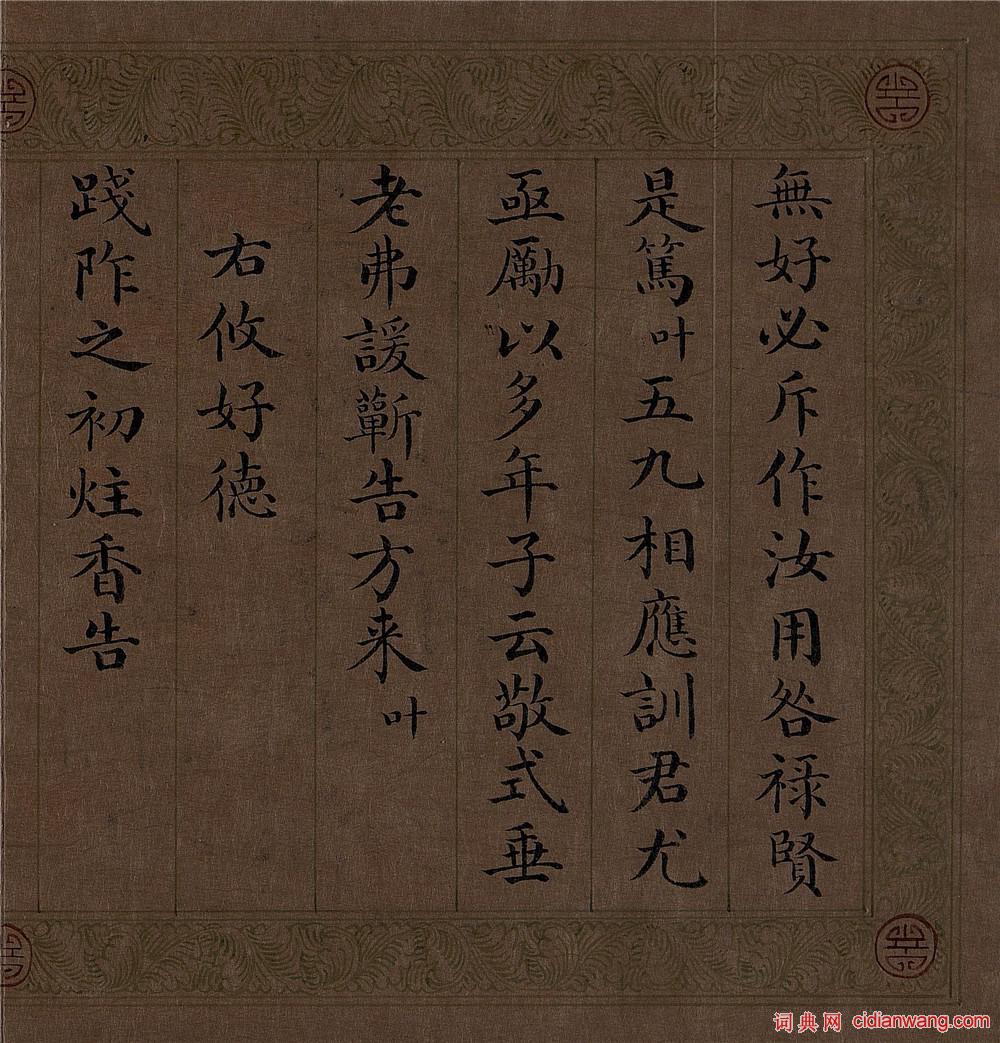 無好必斥作汝用咎禄賢
是篤叶五九相應訓君尤
亟勵以多年子云敬式垂
老弗諼蘄告方来叶
右攸好德
践阼之初炷香告
词典网 cidianwang.com